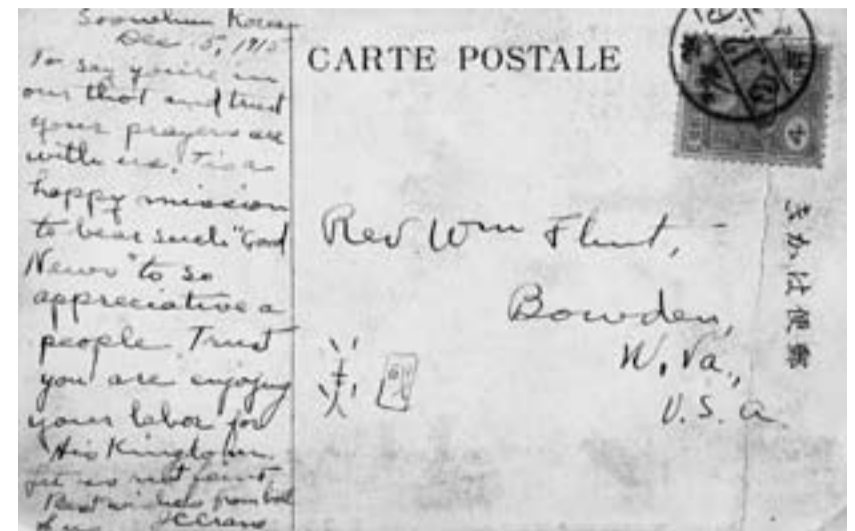 Soonchun Korea
Dec 15, 1915
To say you're in
our thot and trust
your prayers are
with us. Tis a
happy mission
to bear such "Good
News" to so
appreciative a
people. Trust
you are enjoying
your labor for
His Kingdom.
Let us not faint.
Best wishes from both
of us JCCrane
CARTE POSTALE
Rev Wm Flint,
Bowden,
W. Va.,
U.S.A.
きかは便郵
美